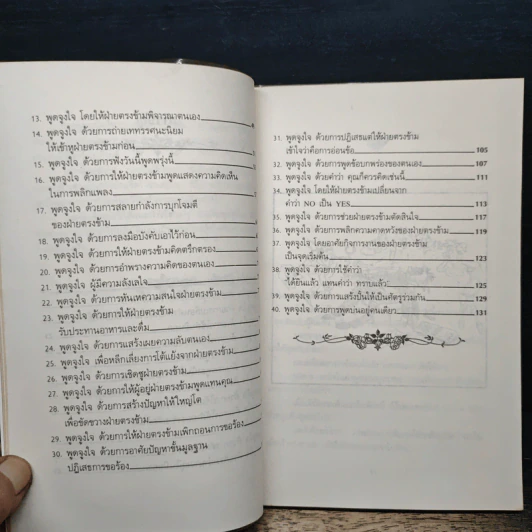 13. พูดจูงใจ โดยให้ฝ่ายตรงข้ามพิจารณาตนเอง
14. พูดจูงใจ ด้วยการถ่ายเททรรศนะนิยม
ให้เข้าหูฝ่ายตรงข้ามก่อน
15. พูดจูงใจ ด้วยการฟังวันนี้พูดพรุ่งนี้
16. พูดจูงใจ ด้วยการให้ฝ่ายตรงข้ามพูดแสดงความคิดเห็น
ในการพลิกแพลง
17. พูดจูงใจ ด้วยการสลายกำลังการบุกโจมตี
ของฝ่ายตรงข้าม
18. พูดจูงใจ ด้วยการลงมือบังคับเอาไว้ก่อน
19. พูดจูงใจ ด้วยการให้ฝ่ายตรงข้ามคิดตรึกตรอง
20. พูดจูงใจ ด้วยการอำพรางความคิดของตนเอง
21. พูดจูงใจ ผู้มีความลังเลใจ
22. พูดจูงใจ ด้วยการหันเหความสนใจฝ่ายตรงข้าม
23. พูดจูงใจ ด้วยการให้ฝ่ายตรงข้าม
รับประทานอาหารและดื่ม
24. พูดจูงใจ ด้วยการแสร้งเผยความลับตนเอง
25. พูดจูงใจ เพื่อหลีกเลี่ยงการโต้แย้งจากฝ่ายตรงข้าม
26. พูดจูงใจ ด้วยการเชิดชูฝ่ายตรงข้าม
27. พูดจูงใจ ด้วยการให้ผู้อยู่ฝ่ายตรงข้ามพูดแทนคุณ
28. พูดจูงใจ ด้วยการสร้างปัญหาให้ใหญ่โต
เพื่อขัดขวางฝ่ายตรงข้าม
29. พูดจูงใจ ด้วยการให้ฝ่ายตรงข้ามเพิกถอนการขอร้อง
30. พูดจูงใจ ด้วยการอาศัยปัญหาขั้นมูลฐาน
ปฏิเสธการขอร้อง
31. พูดจูงใจ ด้วยการปฏิเสธแต่ให้ฝ่ายตรงข้าม
เข้าใจว่าคือการอ่อนข้อ 105
32. พูดจูงใจ ด้วยการพูดข้อบกพร่องของตนเอง 107
33. พูดจูงใจ ด้วยคำว่า คุณก็ควรคิดเช่นนี้ 111
34. พูดจูงใจ โดยให้ฝ่ายตรงข้ามเปลี่ยนจาก
คำว่า NO เป็น YES 113
35. พูดจูงใจ ด้วยการช่วยฝ่ายตรงข้ามตัดสินใจ 117
36. พูดจูงใจ ด้วยการพลิกความคาดหวังของฝ่ายตรงข้าม 119
37. พูดจูงใจ โดยอาศัยกิจการงานของฝ่ายตรงข้าม
เป็นจุดเริ่มต้น 123
38. พูดจูงใจ ด้วยการใช้คำว่า
ได้ยินแล้ว แทนคำว่า ทราบแล้ว 125
39. พูดจูงใจ ด้วยการแสร้งปั้นให้เป็นศัตรูร่วมกัน 129
40. พูดจูงใจ ด้วยการพูดบ่นอยู่คนเดียว 131